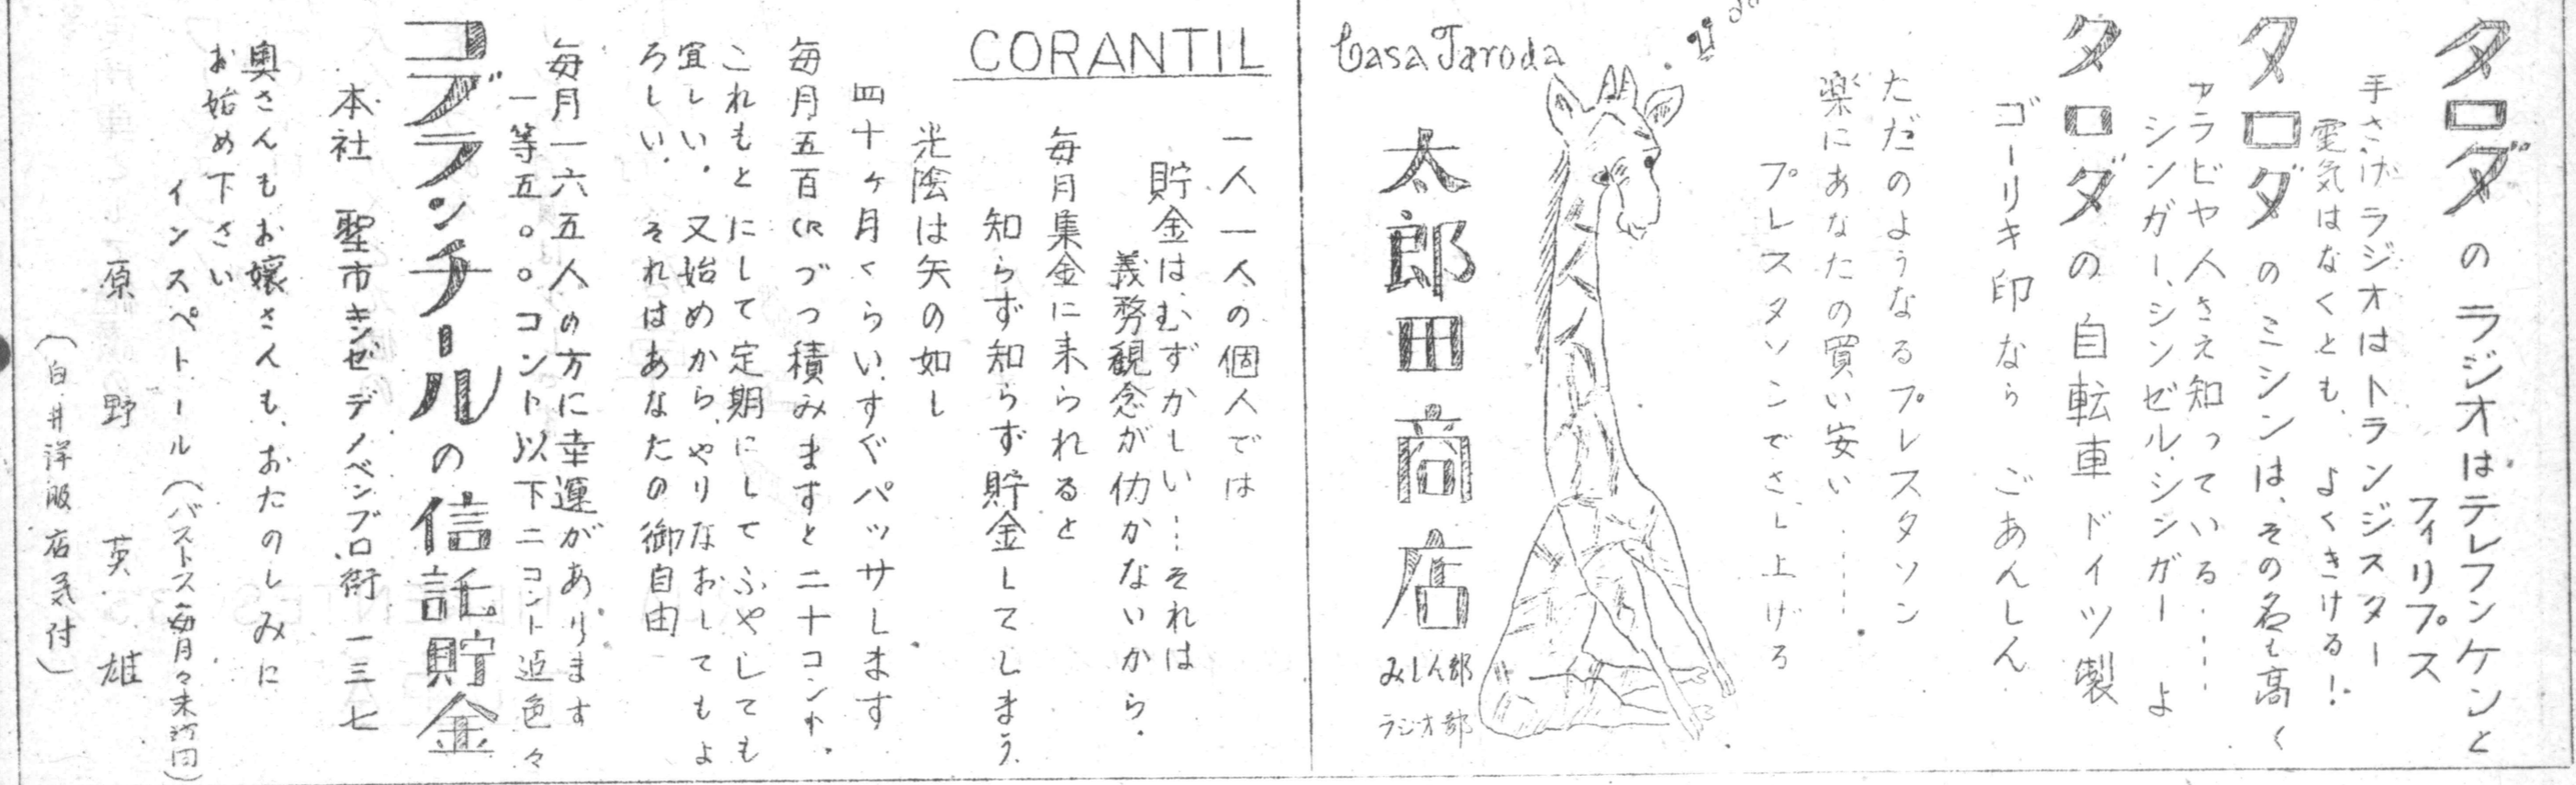 タロダのラジオはテレフンケンと
フィリプス
手さげラジオはトランジスター
電気はなくとも、よくきける!
タロダのミシンは、その名も高く
アラビヤ人さえ知っている……
シンガー、シンゼル、シンガーよ
タロダの自転車 ドイツ製
ゴーリキ印なら ごあんしん
ただのようなるプレスタソン
楽にあなたの買い安い……
プレスタソンでさし上げる
Casa Taroda
太郎田商店
みしん部
ラジオ部
CORANTIL
一人一人の個人では
貯金はむずかしい…それは
義務観念が仂かないから.
毎月集金に来られると
知らず知らず貯金してしまう.
光陰は矢の如し
四十ヶ月くらい、すぐパッサします
毎月五百CRづつ積みますと二十コント.
これもとにして定期にしてふやしても
宜しい. 又始めから、やりなおしてもよ
ろしい. それはあなたの御自由
毎月一六五人の方に幸運があります
一等五〇〇コント以下二コント迄色々
コブランチールの信託貯金
本社 聖市キンゼデノベンブロ街 一三七
奥さんもお嬢さんも、おたのしみに
お始め下さい
インスペトール(バストス毎月々末
原野英雄
(白井洋服店気付)